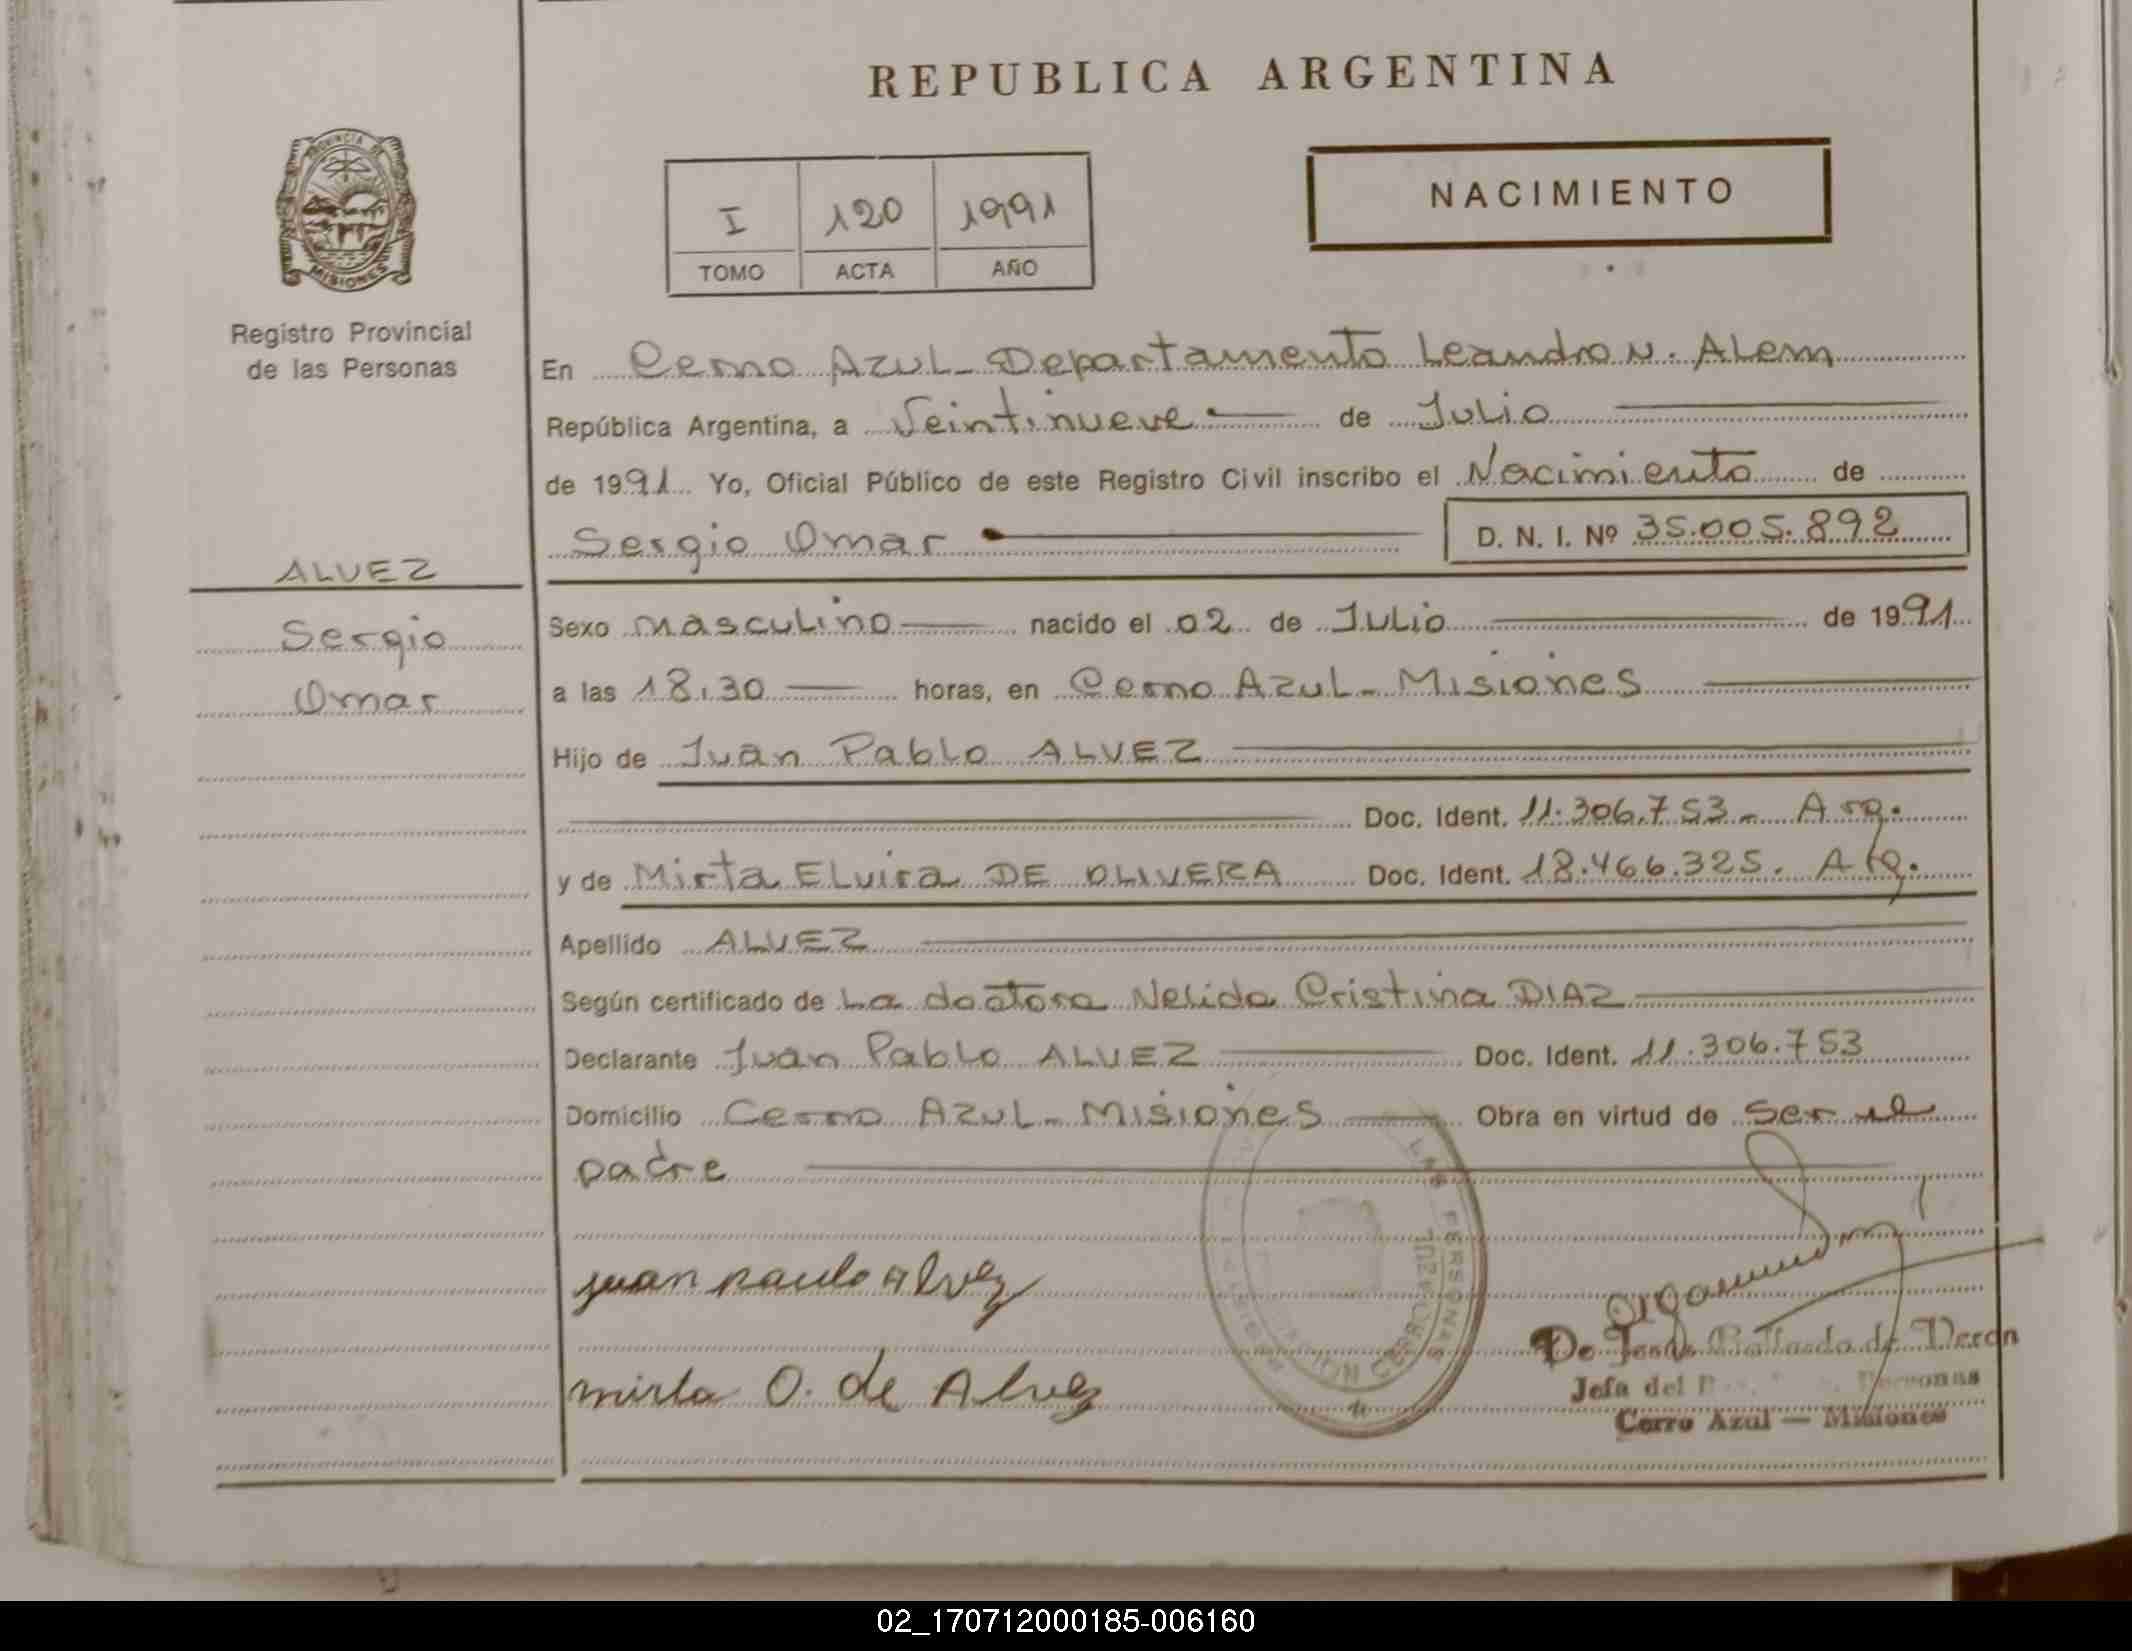 REPUBLICA ARGENTINA
PROVINCIA DE
MISIONES
Registro Provincial
de las Personas
I 120 1991
TOMO ACTA AÑO
NACIMIENTO
En Cerro Azul - Departamento Leandro N. Alem
República Argentina, a Veintinueve de Julio
de 1991 Yo, Oficial Público de este Registro Civil inscribo el Nacimiento de
Sergio Omar D. N. I. Nº 35.005.892
ALVEZ
Sergio
Omar
Sexo masculino nacido el 02 de Julio de 1991
a las 18,30 horas, en Cerro Azul - Misiones
Hijo de Juan Pablo ALVEZ
Doc. Ident. 11.306.753 - Arg.
y de Mirta Elvira DE OLIVERA Doc. Ident. 18.466.325. Arg.
Apellido ALVEZ
Según certificado de La doctora Nelida Cristina DIAZ
Declarante Juan Pablo ALVEZ Doc. Ident. 11.306.753
Domicilio Cerro Azul - Misiones Obra en virtud de ser el
padre
LAS PERSONAS
CERRO AZUL
juan paulo alvez
mirta O. de Alvez
Jefa del Personas
Cerro Azul — Misiones
02_170712000185-006160